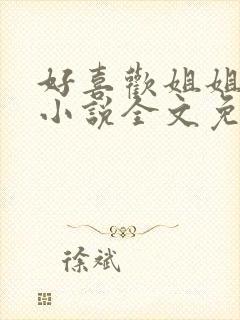 好喜歡姐姐
小說全文免
徐斌